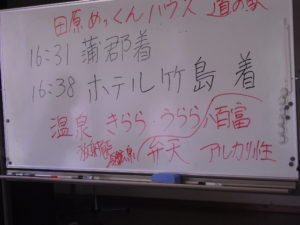 田原めっくんハウス 道の駅
16:31 蒲郡着
16:38 ホテル竹島 着
温泉 きらら、うらら、八百富
放射能 弁天 アルカリ性